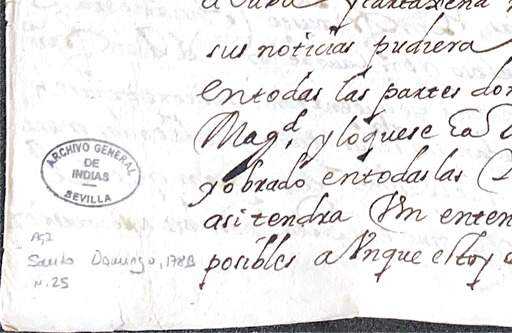 a Cuba y cartaxena
sus noticias pudiera
entodas las partes don
Magd. y loquese
yobrado entodas las
asi tendra Un enten
posibles aUnque estoy
ARCHIVO GENERAL
DE
INDIAS
SEVILLA
AGI
Santo Domingo, 178B
N. 25